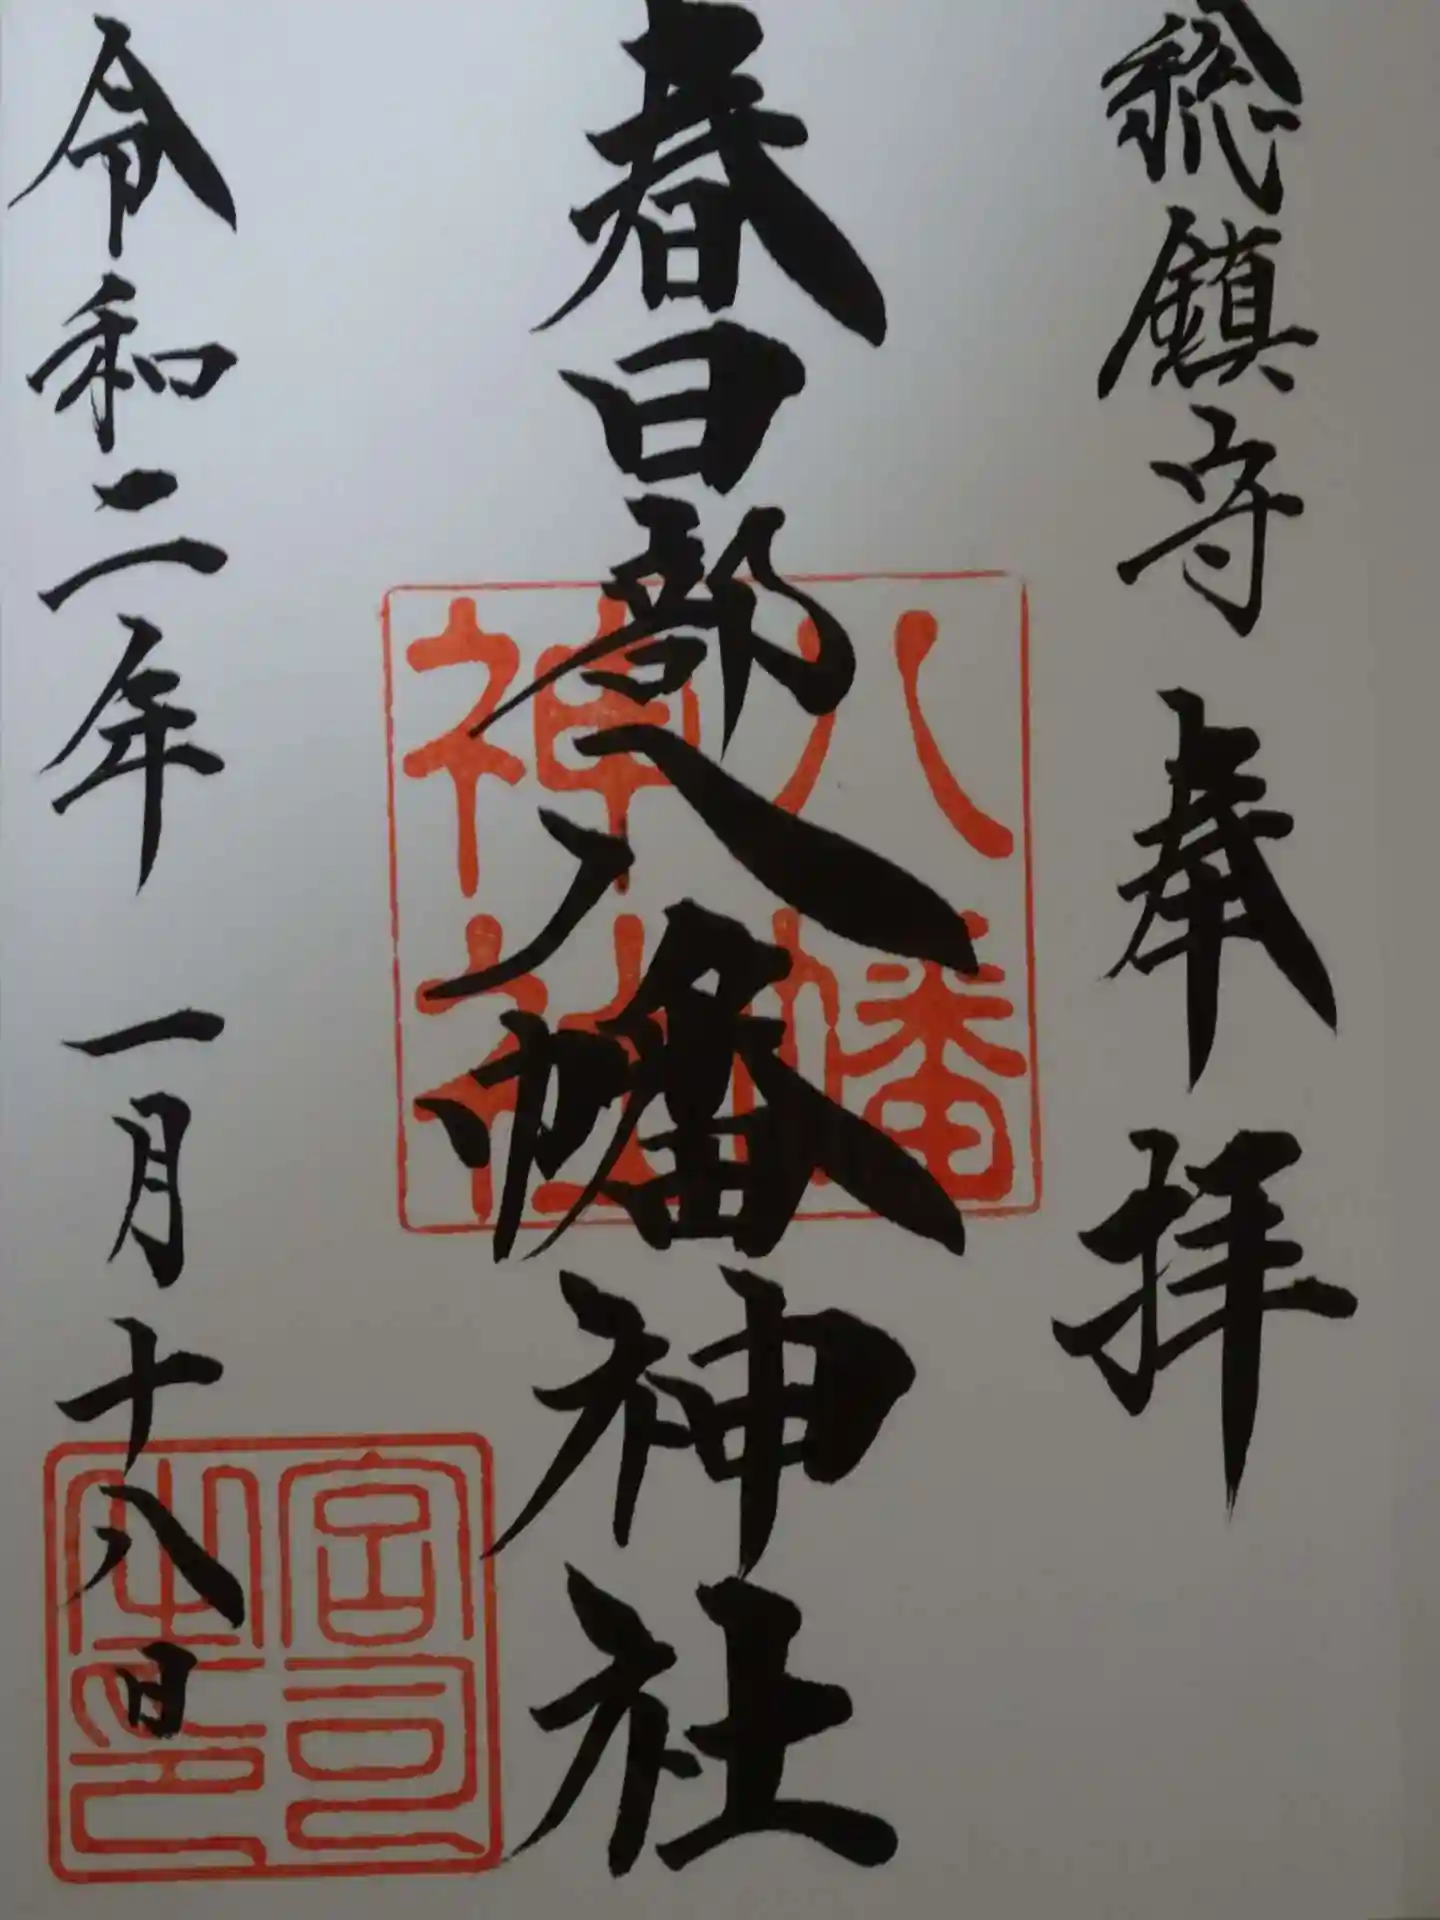 総鎮守 奉拝
春日部八幡神社
八幡
神社
令和二年 一月十八日
宮司
之印